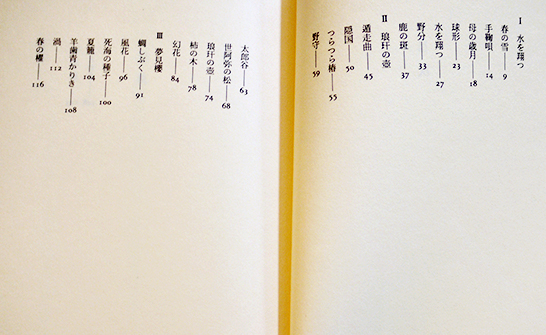 I 水を翔つ
春の雪——9
手鞠唄——14
母の歳月——18
球形——23
水を翔つ——27
野分——33
鹿の斑——37
II 琅玕の壺
遁走曲——45
隠国——50
つらつら椿——55
野守——59
太郎谷——63
世阿弥の松——68
琅玕の壺——74
柿の木——78
幻花——84
III 夢見櫻
鯛しぶく——91
風花——96
死海の種子——100
夏鏡——104
羊歯青かりき——108
渦——112
春の櫂——116